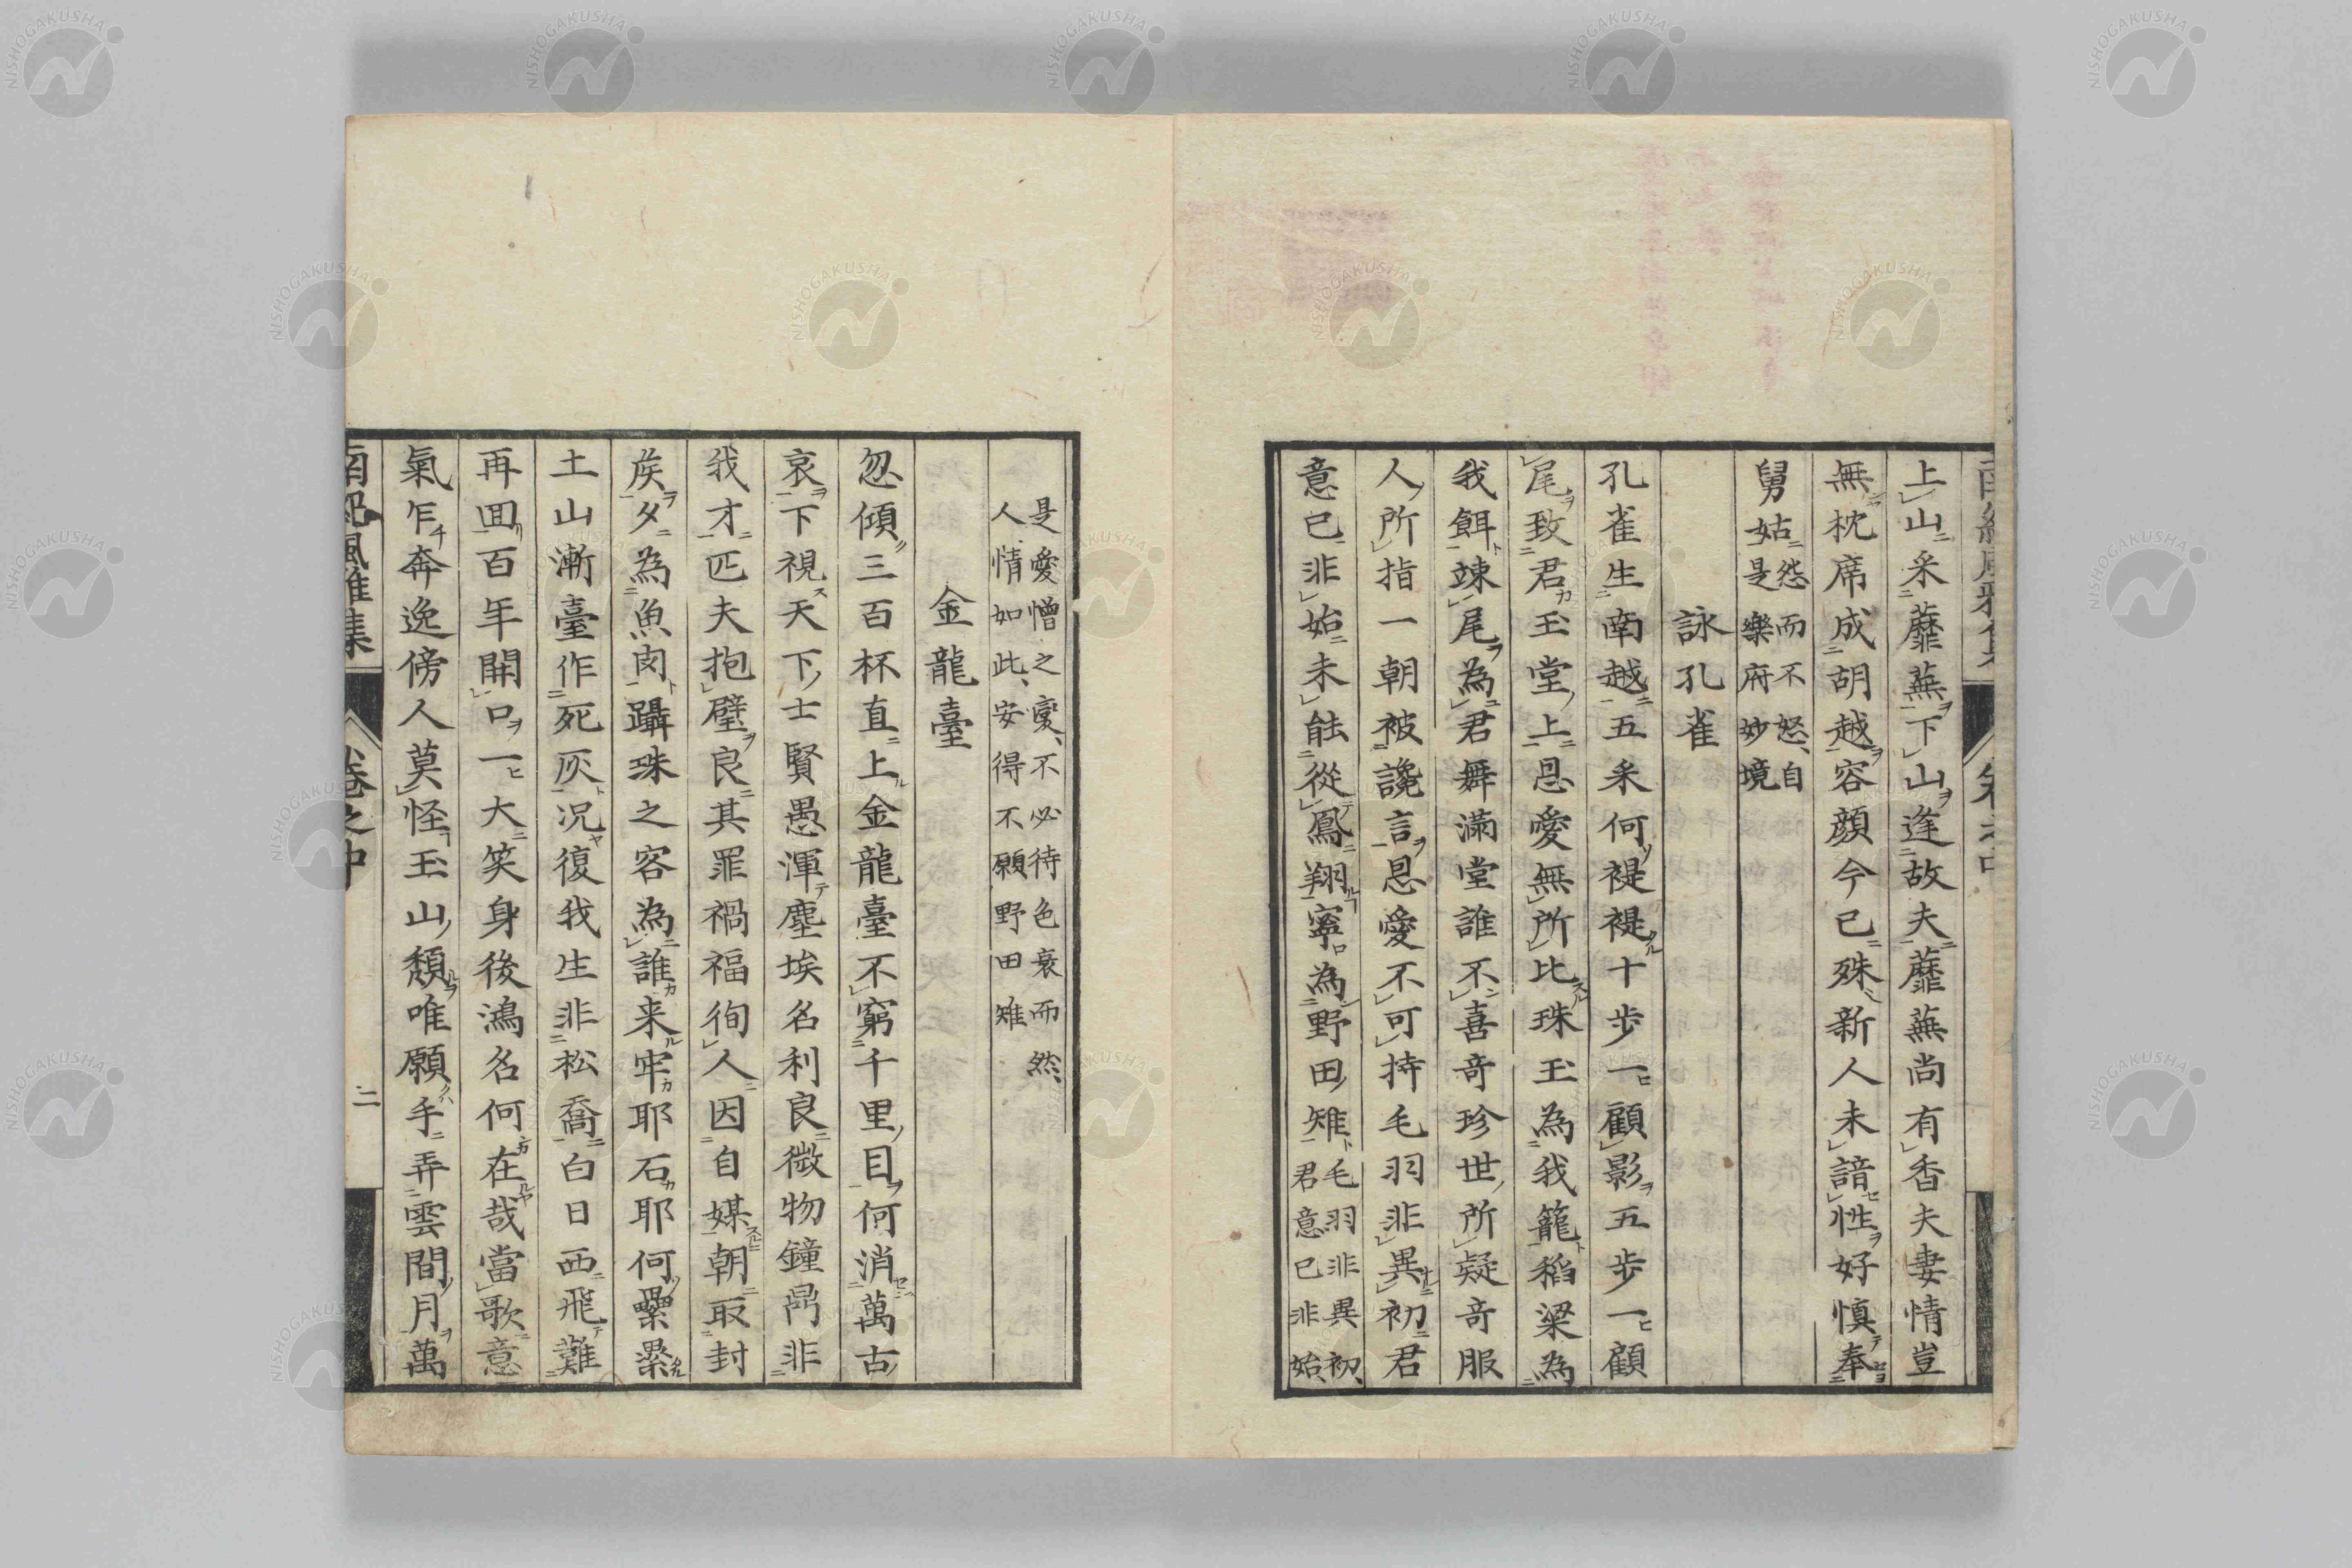 上山采蘼蕪下山逢故夫蘼蕪尚有香夫妻情豈
無枕席成胡越容顔今已殊新人未諳性好慎奉
舅姑怨而不怒、自
是樂府妙境
詠孔雀
孔雀生南越五采何禔禔十步一顧影五步一顧
尾致君玉堂上恩愛無所比珠玉為我籠稻粱為
我餌竦尾為君舞滿堂誰不喜奇珍世所疑奇服
人所指一朝被讒言恩愛不可持毛羽非異初君
意已非始未能從鳳翔寧為野田雉毛羽非異初、
君意已非始、
是愛憎之変、不必待色衰而然、
人情如此、安得不願野田雉
金龍臺
忽傾三百杯直上金龍臺不窮千里目何消萬古
哀下視天下士賢愚渾塵埃名利良微物鐘鼎非
我才匹夫抱璧良其罪禍福徇人因自媒朝取封
矦夕為魚肉躡珠之容為誰来牢耶石耶何纍纍
土山漸臺作死灰况復我生非松喬白日西飛難
再回百年開口一大笑身後鴻名何在哉當歌意
氣乍奔逸傍人莫怪玉山頽唯願手弄雲間月萬
南紀風雅集
卷之中
二
NISHOGAKUSHA